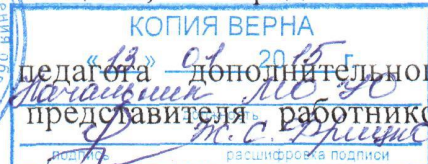 КОПИЯ ВЕРНА
«13» 01 2015 г.
педагога дополнительно
Начальник МО УО
представителя работнико
Ж. С.
подпись расшифровка подписи